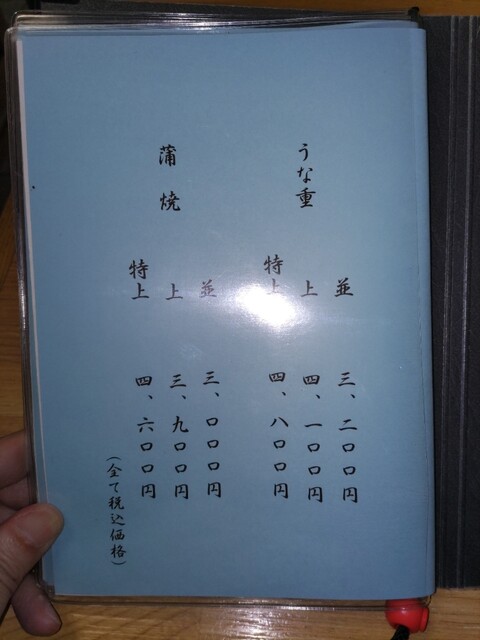 うな重
並 三、二〇〇円
上 四、一〇〇円
特上 四、八〇〇円
蒲焼
並 三、〇〇〇円
上 三、九〇〇円
特上 四、六〇〇円
(全て税込価格)